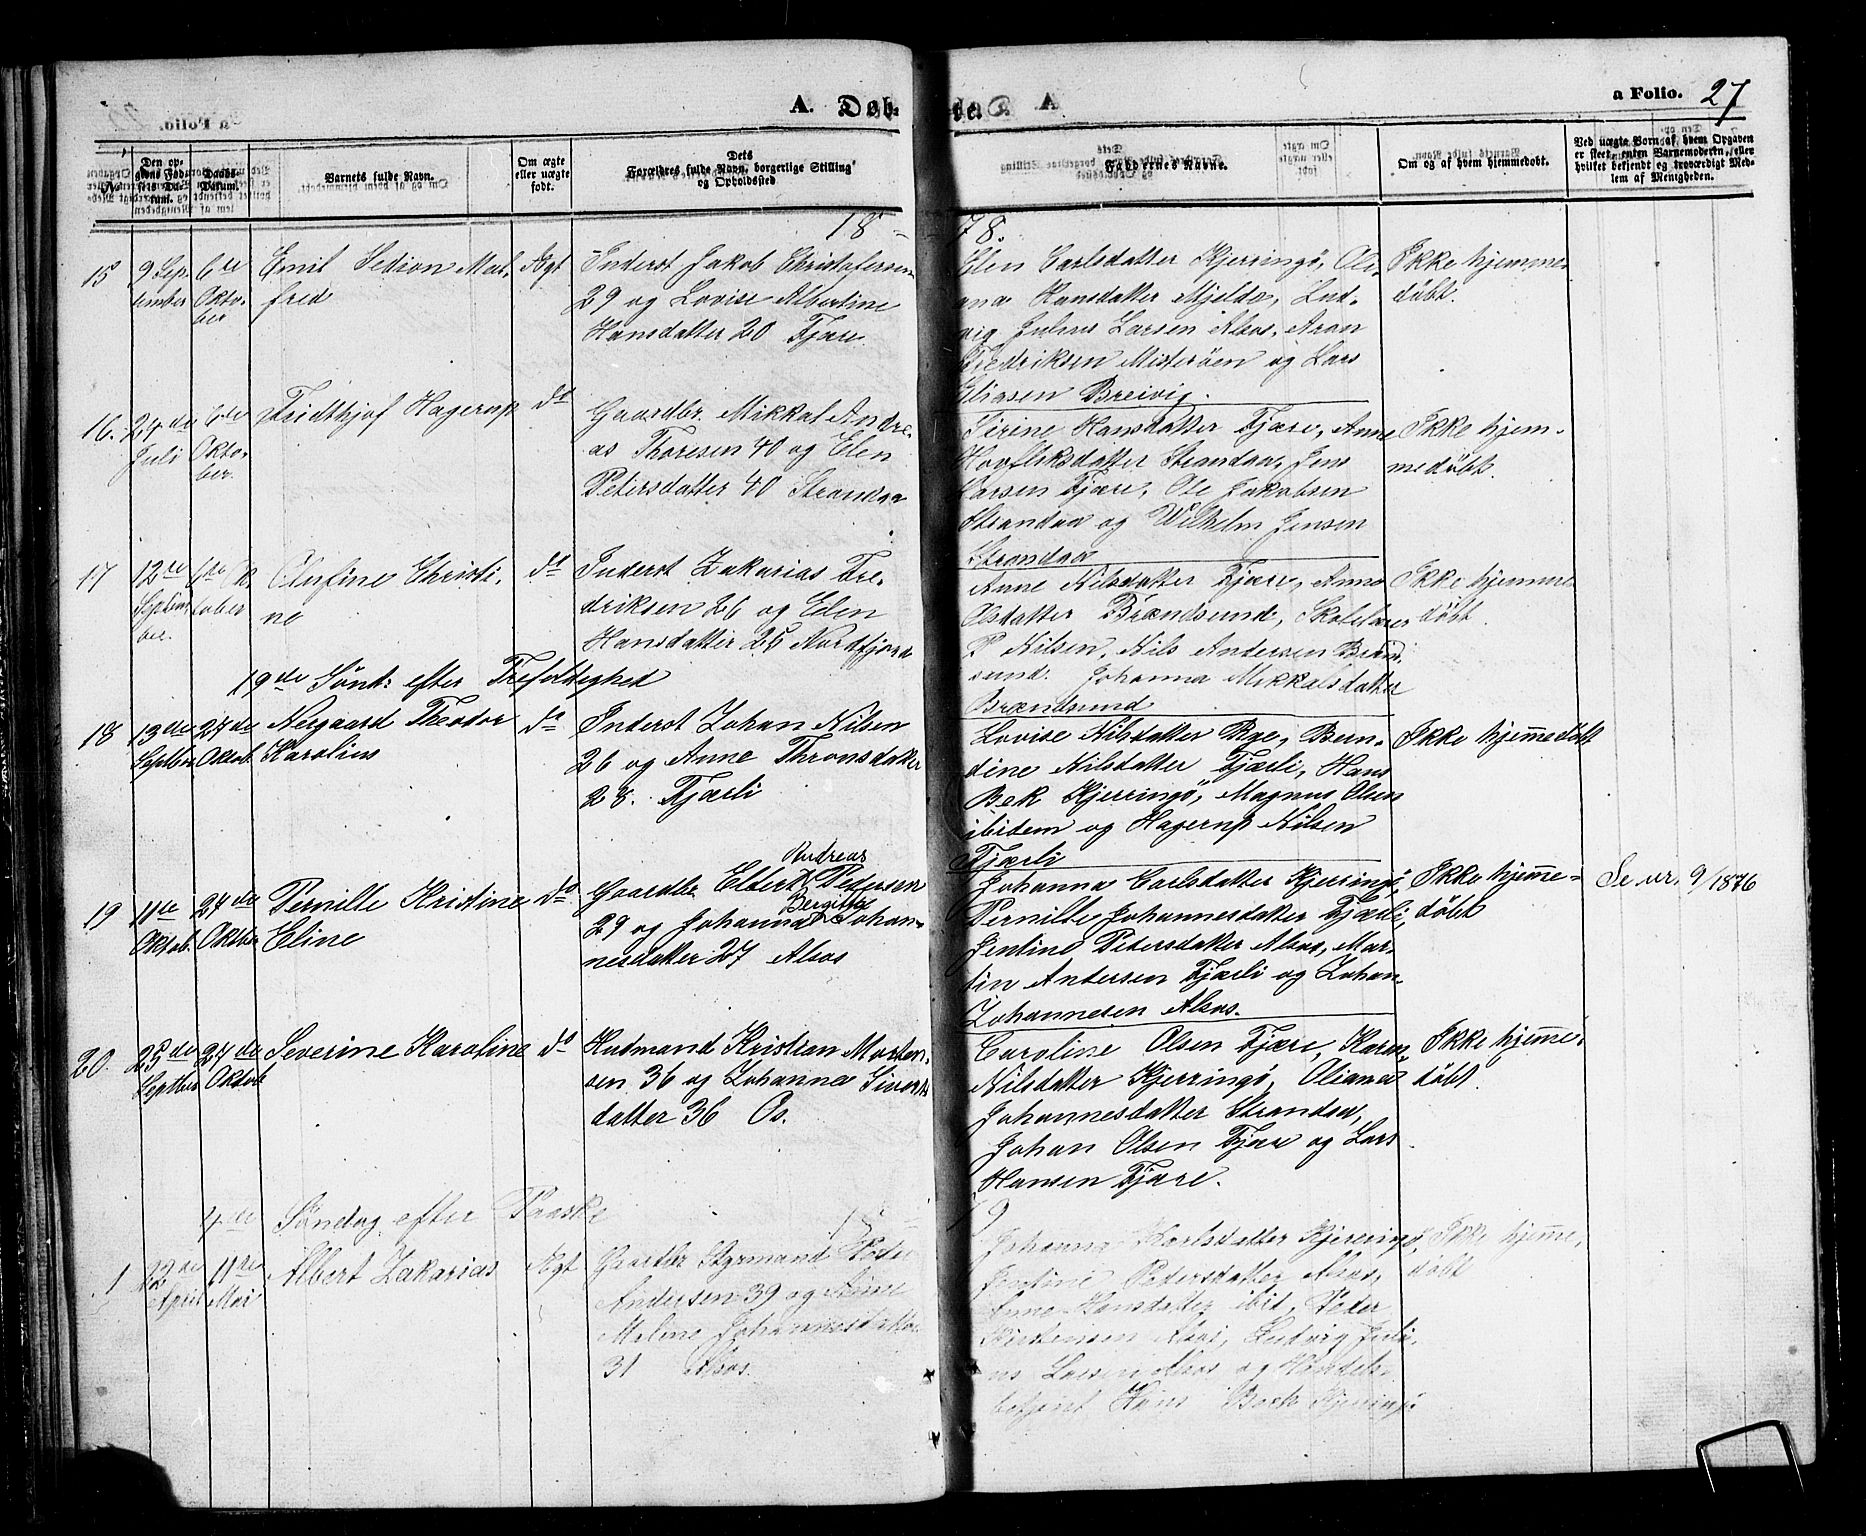 A. Døb-
te.
a Folio. 27
No.
Den op-
givne Fød-
sels Da-
tum.
Daabs-
Datum.
Barnets fulde Navn.
Om ægte
eller uægte
født.
Dets
Forældres fulde Navn, borgerlige Stilling
og Opholdssted.
Faddernes Navne.
Om og af hvem hjemmedøbt.
Ved uægte Børn af hvem Opgaven
er skeet, enten Barnemoderen, eller
hvilket bekjendt og troværdigt Med-
lem af Menigheden.
1878.
15
9 Sep-
tember
6te
Okto-
ber
Emil Sedion Mal-
fred
Ægt
Inderst Jakob Christofersen
29 og Lovise Albertine
Hansdatter 20 Fjære
Elen Carlsdatter Kjerringö, Oli-
ana Hansdatter Mjelde, Lud-
vig Julius Larsen Alsos, Aron
Fredriksen Misterøen og Lars
Eliasen Breivig.
Ikke hjemme
døbt.
16.
24de
Juli
6te
Okto-
ber.
Fridthjof Hagerup
do
Gaardbr. Mikkal Andre-
as Thoresen 40 og Elen
Petersdatter 40 Strandaa
Sirine Hansdatter Fjære, Anne
Hovfliksdatter Strandaa, Jens
Larsen Fjære, Ole Jakobsen
Strandaa og Wilhelm Jensen
Strandaa
Ikke hjem-
medøbt.
17
12te
Septem-
ber.
6te Ok
tober
Olufine Christi-
ne
do
Inderst Zakarias Fre-
driksen 26 og Elen
Hansdatter 25 Nordfjord
Anne Nilsdatter Fjære, Anne
Olsdatter Brændsund, Skolelærer
P Nilsen, Nils Andersen Bræn-
sund. Johanna Mikkalsdatter
Brændsund
Ikke hjemme
døbt.
19de Sönt: efter Trefoldighed
18
13de
Septbr
27de
Oktob.
Nergaard Theodor
Karolius
do
Inderst Johan Nilsen
26 og Anne Thronsdatter
28. Fjærli
Lovise Nilsdatter Øye, Bern-
dine Nilsdatter Fjærli, Hans
Bek Kjerringö, Magnus Olsen
ibidem og Hagerup Nilsen
Fjærli
Ikke hjemmedøbt
19
11te
Oktob.
27de
Oktber
Pernille Kristine
Eline
do
Andreas
Gaardbr Ellert Pedersen
Bergitha
29 og Johanna Johan-
nesdatter 27 Alsos
Johanna Carlsdatter Kjerringö,
Pernille Johannesdatter Fjærli,
Jentine Petersdatter Alsos, Mar-
tin Andersen Fjærli og Johan
Johannesen Alsos.
Ikke hjemme-
døbt
Se nr. 9/1876
20.
25de
Septber
27de
Oktob
Severine Karoline
do
Husmand Kristian Morten-
sen 36 og Johanna Siverts
datter 36 Os.
Caroline Olsen Fjære, Karen
Nilsdatter Kjerringö, Oliana
Johannesdatter Strandaa,
Johan Olsen Fjære og Lars
Hansen Fjære.
Ikke hjemme-
døbt.
1879
4de Søndag efter Paaske
1
12te
April
11te
Mai
Albert Zakarias
Ægt
Gaardbr Styrmand Peder
Andersen 39 og Anne
Malene Johannesdatter
31 Alsos.
Johanna Karlsdatter Kjerringö,
Jentine Pedersdatter Alsos,
Anne Hansdatter ibid, Peder
Kristensen Alsos, Ludvig Juli-
us Larsen Alsos og Handels-
betjent Hans Beck Kjerringö
Ikke hjemme-
døbt